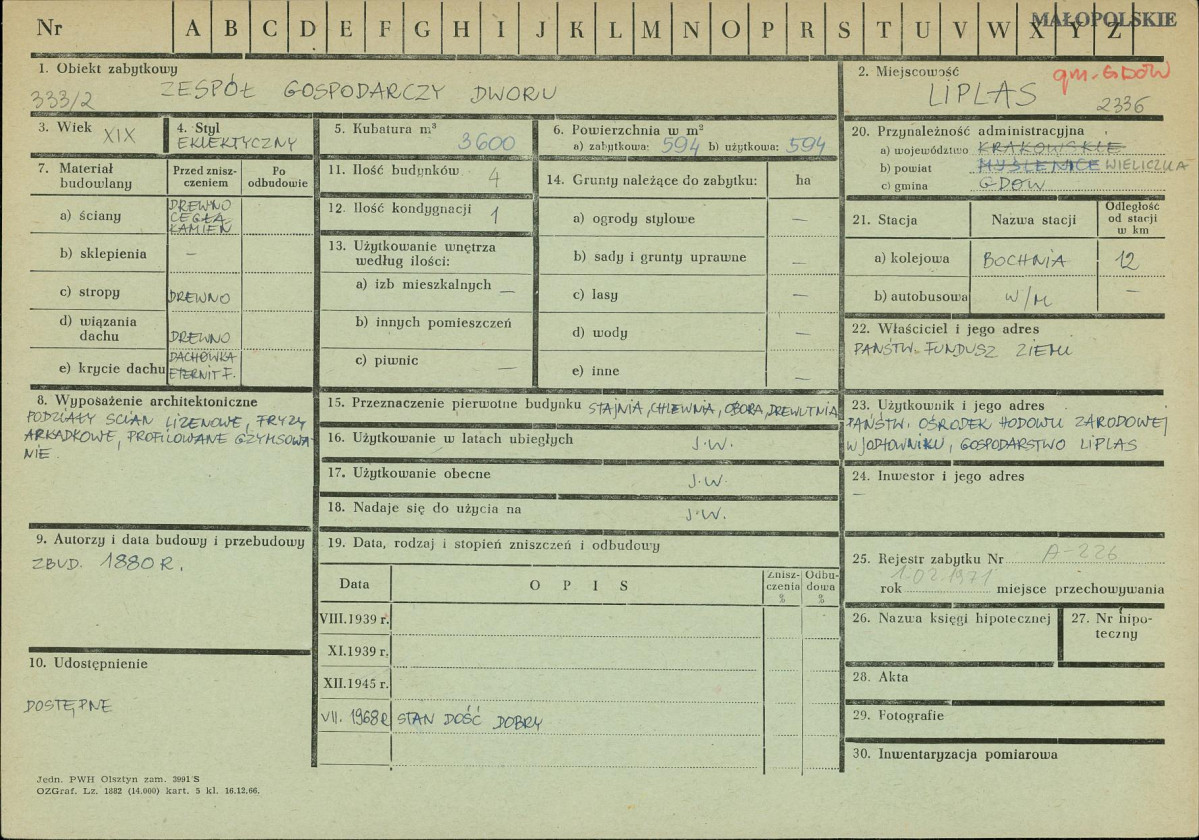 Nr A B C D E F G H I J K L M N O P R S T U V W X Y Z
MAŁOPOLSKIE
1. Obiekt zabytkowy
333/2 ZESPÓŁ GOSPODARCZY DWORU
2. Miejscowość gm. GDÓW
LIPLAS 2336
3. Wiek XIX
4. Styl
EKLEKTYCZNY
5. Kubatura m³ 3600
6. Powierzchnia w m²
a) zabytkowa: 594 b) użytkowa: 594
7. Materiał budowlany
Przed zniszczeniem
Po odbudowie
a) ściany DREWNO
CEGŁA
KAMIEŃ
b) sklepienia –
c) stropy DREWNO
d) wiązania dachu DREWNO
e) krycie dachu DACHÓWKA
ETERNIT F.
8. Wyposażenie architektoniczne
PODZIAŁY ŚCIAN LIZENOWE, FRYZY
ARKADKOWE, PROFILOWANE GZYMSOWA-
NIE.
9. Autorzy i data budowy i przebudowy
ZBUD. 1880 R.
10. Udostępnienie
DOSTĘPNE
11. Ilość budynków 4
12. Ilość kondygnacji 1
13. Użytkowanie wnętrza
według ilości:
a) izb mieszkalnych –
b) innych pomieszczeń
c) piwnic –
14. Grunty należące do zabytku: ha
a) ogrody stylowe –
b) sady i grunty uprawne –
c) lasy –
d) wody –
e) inne –
15. Przeznaczenie pierwotne budynku STAJNIA, CHLEWNIA, OBORA, DREWUTNIA
16. Użytkowanie w latach ubiegłych J.W.
17. Użytkowanie obecne J.W.
18. Nadaje się do użycia na J.W.
19. Data, rodzaj i stopień zniszczeń i odbudowy
Data OPIS Zniszczenia % Odbudowa %
VIII.1939 r.
XI.1939 r.
XII.1945 r.
VII. 1968 R STAN DOŚĆ DOBRY
20. Przynależność administracyjna
a) województwo KRAKOWSKIE
b) powiat MYŚLENICE WIELICZKA
c) gmina GDÓW
21. Stacja Nazwa stacji Odległość od stacji w km
a) kolejowa BOCHNIA 12
b) autobusowa W/M –
22. Właściciel i jego adres
PAŃSTW. FUNDUSZ ZIEMI
23. Użytkownik i jego adres
PAŃSTW. OŚRODEK HODOWLI ZARODOWEJ
W JODŁOWNIKU, GOSPODARSTWO LIPLAS
24. Inwestor i jego adres
–
25. Rejestr zabytku Nr A-226
rok 1.02.1971 miejsce przechowywania
26. Nazwa księgi hipotecznej
27. Nr hipoteczny
28. Akta
29. Fotografie
30. Inwentaryzacja pomiarowa
Jedn. PWH Olsztyn zam. 3991/S
OZGraf. Lz. 1882 (14.000) kart. 5 kl. 16.12.66.